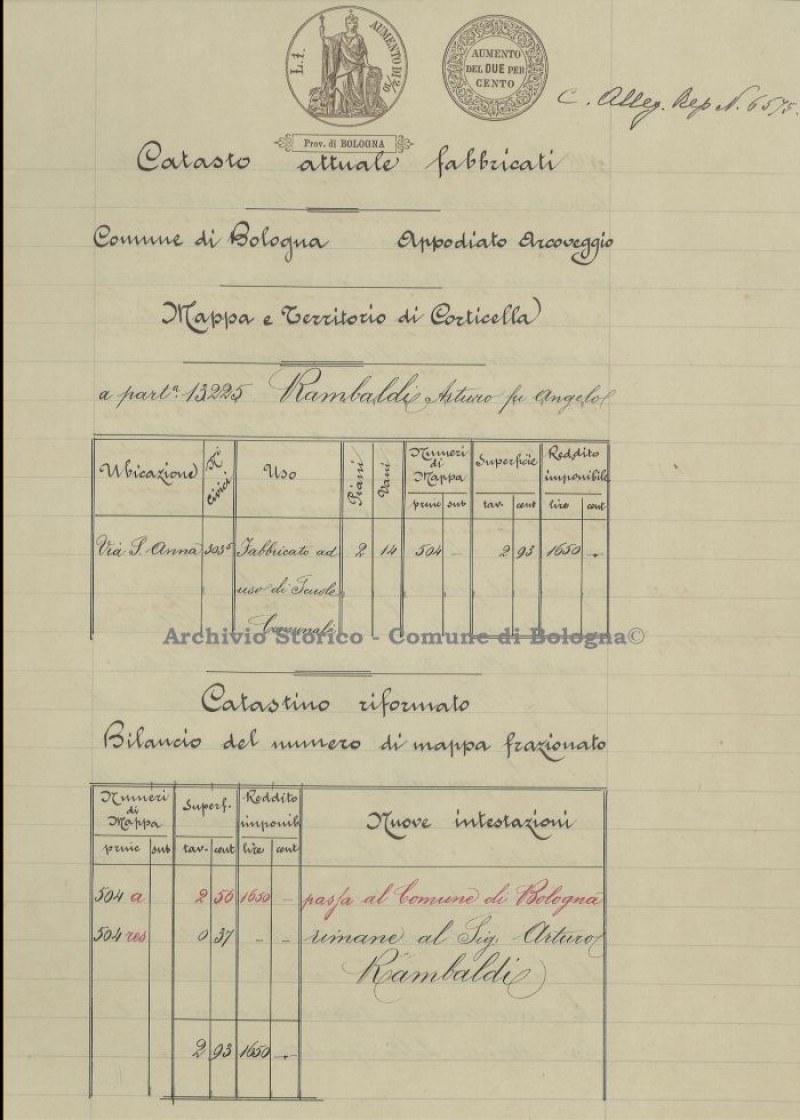 L. 1. AUMENTO DI 2/10
AUMENTO
DEL DUE PER
CENTO
C. Alleg. Rep N. 6575.
Prov. di BOLOGNA
Catasto attuale fabbricati
Comune di Bologna Appodiato Arcoveggio
Mappa e Territorio di Corticella
a part.a 13225 Rambaldi Arturo fu Angelo
Ubicazione N.i Civici Uso Piani Vani Numeri di Mappa Superficie Reddito imponibile
princ sub tav. cent lire cent
Via S. Anna 303 Fabbricato ad 2 14 504 - 2 93 1650 -
uso di Scuole
Comunali
Archivio Storico - Comune di Bologna©
Catastino riformato
Bilancio del numero di mappa frazionato
Numeri di Mappa Superf. Reddito imponib Nuove intestazioni
princ sub tav. cent lire cent
504 a 2 56 1650 - passa al Comune di Bologna
504 res 0 37 - - rimane al Sig. Arturo
Rambaldi
2 93 1650 -